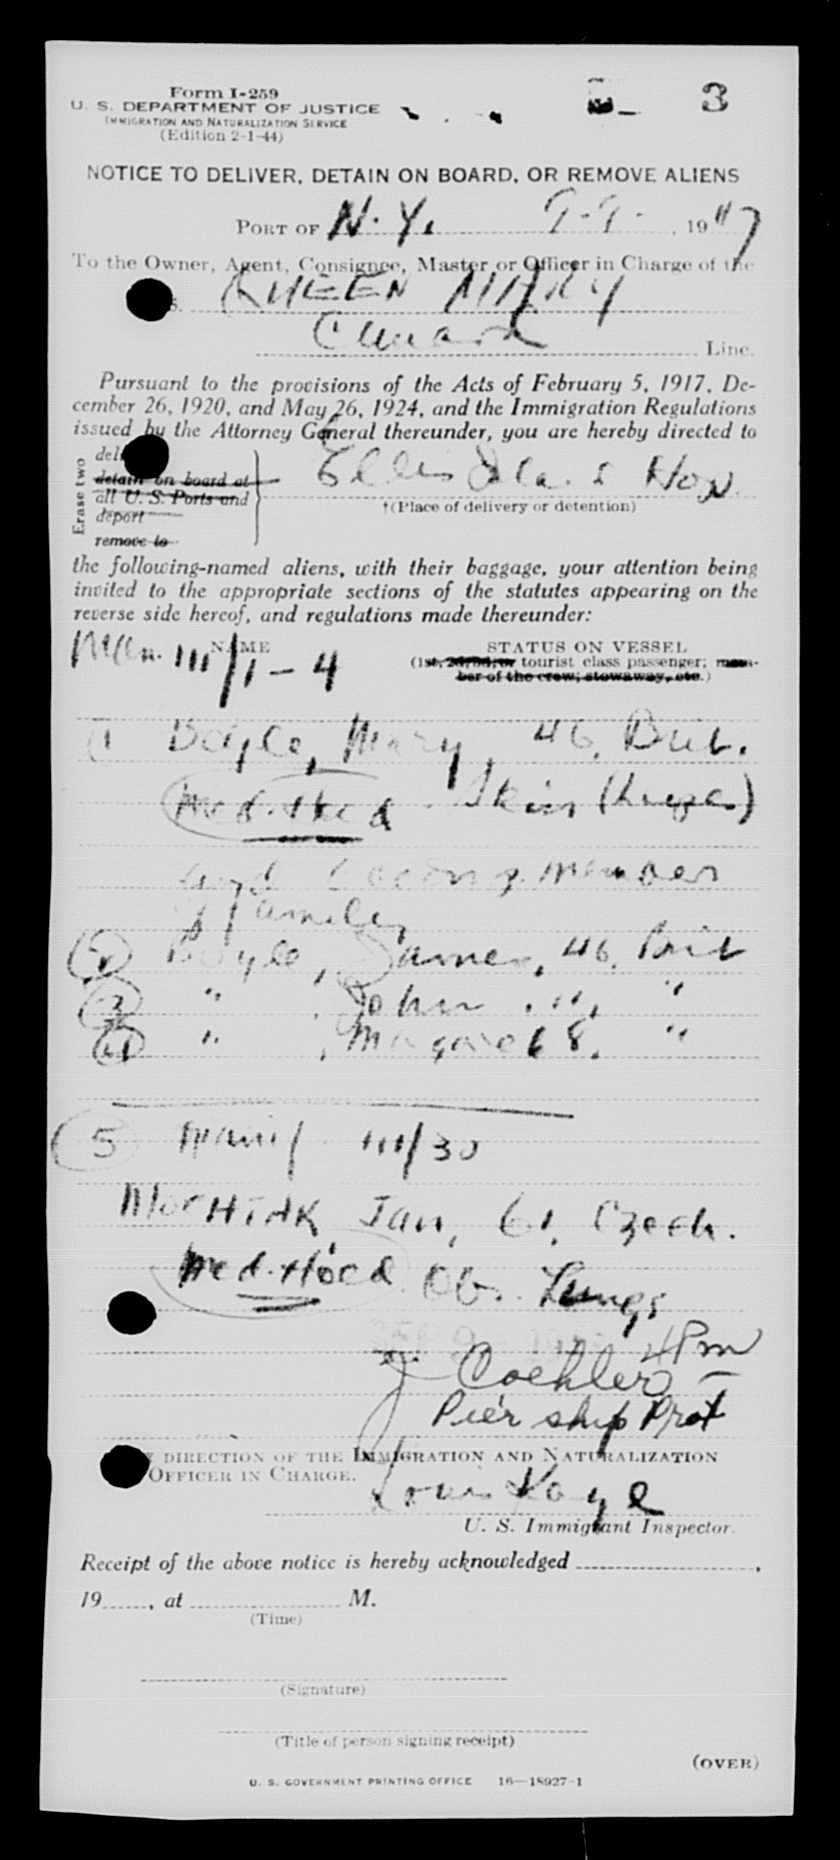 3
Form I-259
U. S. DEPARTMENT OF JUSTICE
IMMIGRATION AND NATURALIZATION SERVICE
(Edition 2-1-44)
NOTICE TO DELIVER, DETAIN ON BOARD, OR REMOVE ALIENS
PORT OF N. Y. 9-9- , 1947
To the Owner, Agent, Consignee, Master or Officer in Charge of the
S. QUEEN MARY
Cunard Line.
Pursuant to the provisions of the Acts of February 5, 1917, De-
cember 26, 1920, and May 26, 1924, and the Immigration Regulations
issued by the Attorney General thereunder, you are hereby directed to
Erase two
detain on board at
all U. S. Ports and
deport
remove to
Ellis Isla. Hosp.
†(Place of delivery or detention)
the following-named aliens, with their baggage, your attention being
invited to the appropriate sections of the statutes appearing on the
reverse side hereof, and regulations made thereunder:
NAME STATUS ON VESSEL
Man. 111/1-4
(1st, 2d, 3d, or tourist class passenger; mem-
ber of the crew; stowaway, etc.)
(1 Boyle, Mary, 46, Brit.
Med. Hed. Skin
Member
of family
(2) Boyle, James, 46, Brit
(3) " , John , 11, "
(4) " , Margaret 8, "
(5) Manif 111/30
Jan, 61, Czech.
Med. Hed. Obs. Lungs
4 Pm
J. Coehler
Pier ship Prot
BY DIRECTION OF THE IMMIGRATION AND NATURALIZATION
OFFICER IN CHARGE.
Louis Kaye
U. S. Immigrant Inspector.
Receipt of the above notice is hereby acknowledged ,
19 , at M.
(Time)
(Signature)
(Title of person signing receipt)
(OVER)
U. S. GOVERNMENT PRINTING OFFICE 16—18927-1